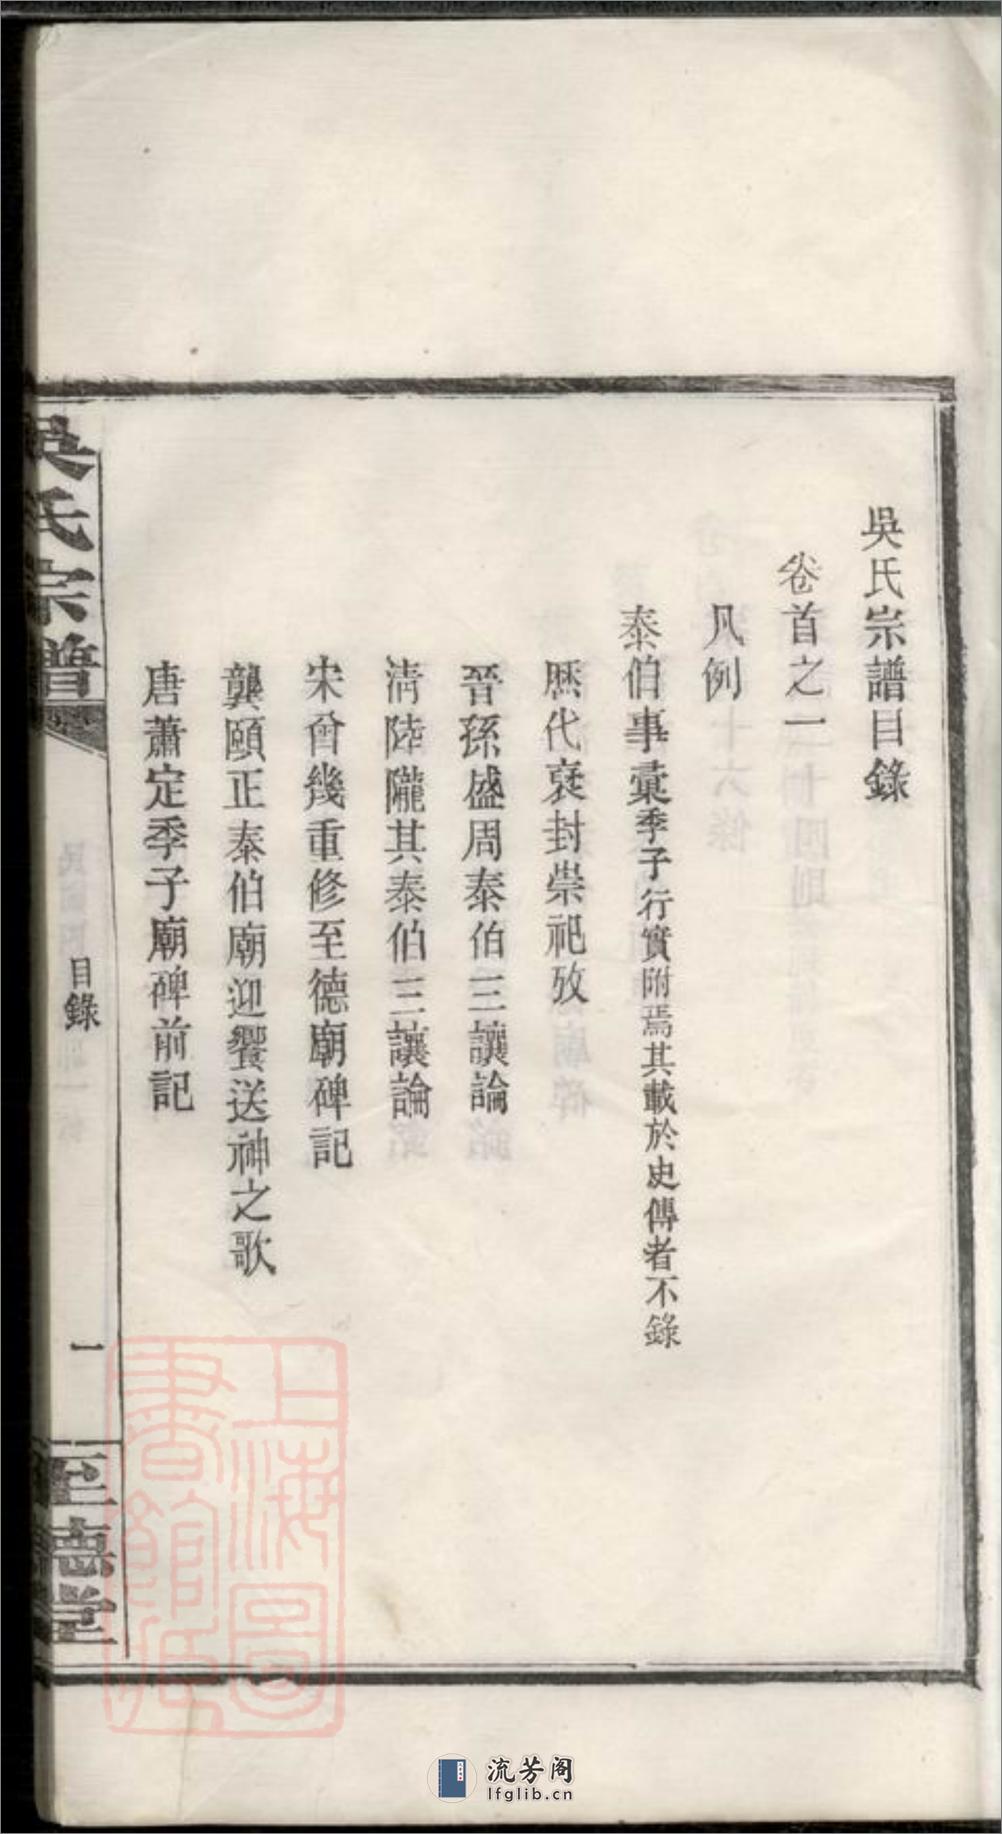 吳氏宗譜目錄
卷首之一
凡例
泰伯事彙季子行實附焉其載於史傳者不錄
歷代裦封崇祀攷
晉孫盛周泰伯三讓論
淸陸隴其泰伯三讓論
宋曾幾重修至德廟碑記
龔頤正泰伯廟迎饗送神之歌
唐蕭定季子廟碑前記
吳氏宗譜
目錄
一
至德堂
上海圖
書館藏
流芳阁
lfglib.cn